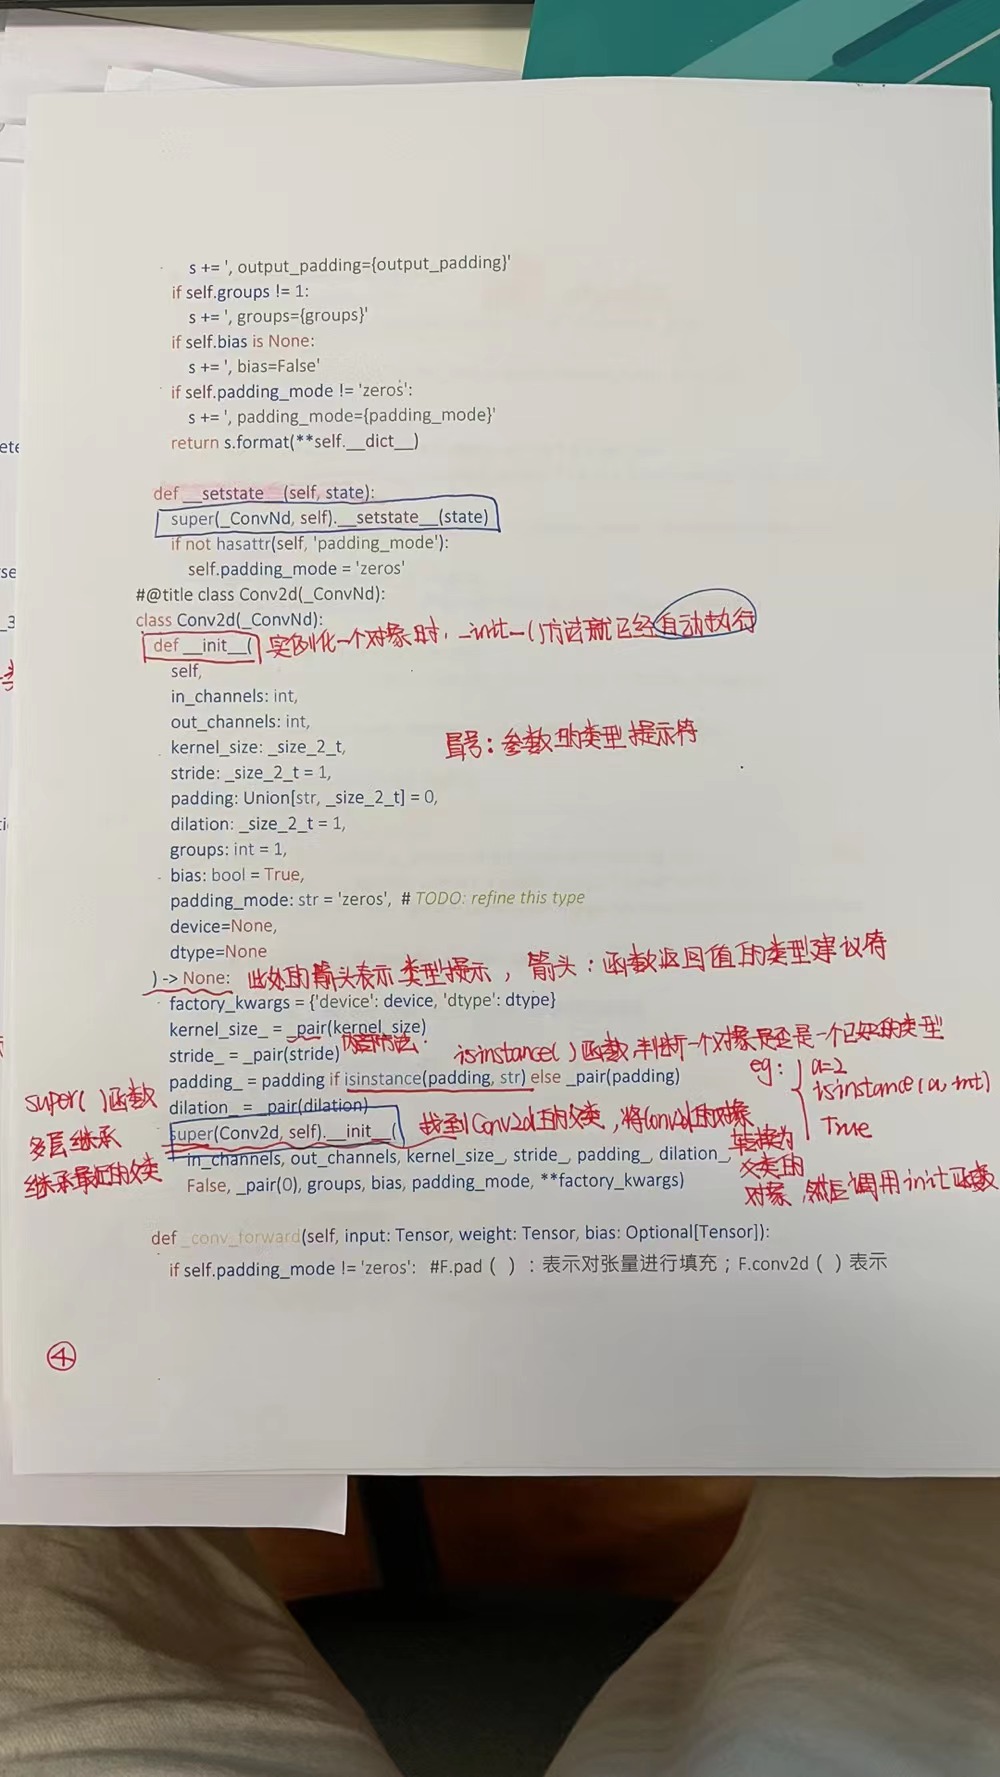 s += ', output_padding={output_padding}'
if self.groups != 1:
s += ', groups={groups}'
if self.bias is None:
s += ', bias=False'
if self.padding_mode != 'zeros':
s += ', padding_mode={padding_mode}'
return s.format(**self.__dict__)
def __setstate__(self, state):
super(_ConvNd, self).__setstate__(state)
if not hasattr(self, 'padding_mode'):
self.padding_mode = 'zeros'
#@title class Conv2d(_ConvNd):
class Conv2d(_ConvNd):
def __init__( 实例化一个对象时，_init_()方法就已经自动执行
self,
in_channels: int,
out_channels: int,
kernel_size: _size_2_t, 冒号：参数的类型提示符
stride: _size_2_t = 1,
padding: Union[str, _size_2_t] = 0,
dilation: _size_2_t = 1,
groups: int = 1,
bias: bool = True,
padding_mode: str = 'zeros', # TODO: refine this type
device=None,
dtype=None
) -> None: 此处的箭头表示类型提示，箭头：函数返回值的类型建议符
factory_kwargs = {'device': device, 'dtype': dtype}
kernel_size_ = _pair(kernel_size)
stride_ = _pair(stride) isinstance()函数判断一个对象是否是一个已知的类型
padding_ = padding if isinstance(padding, str) else _pair(padding)
eg: a=2
isinstance(a, int)
True
dilation_ = _pair(dilation)
super()函数
多层继承
继承最近的父类
super(Conv2d, self).__init__( 找到Conv2d的父类，将Conv2d的对象
转换为
父类的
对象，然后调用init函数
in_channels, out_channels, kernel_size_, stride_, padding_, dilation_,
False, _pair(0), groups, bias, padding_mode, **factory_kwargs)
def _conv_forward(self, input: Tensor, weight: Tensor, bias: Optional[Tensor]):
if self.padding_mode != 'zeros': #F.pad（ ）：表示对张量进行填充；F.conv2d（ ）表示
④